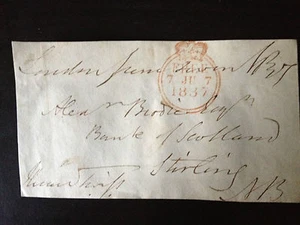 London June
FREE
7 JU 7
1837
Alexr Brodie Esqr
Bank of Scotland
Stirling
NB